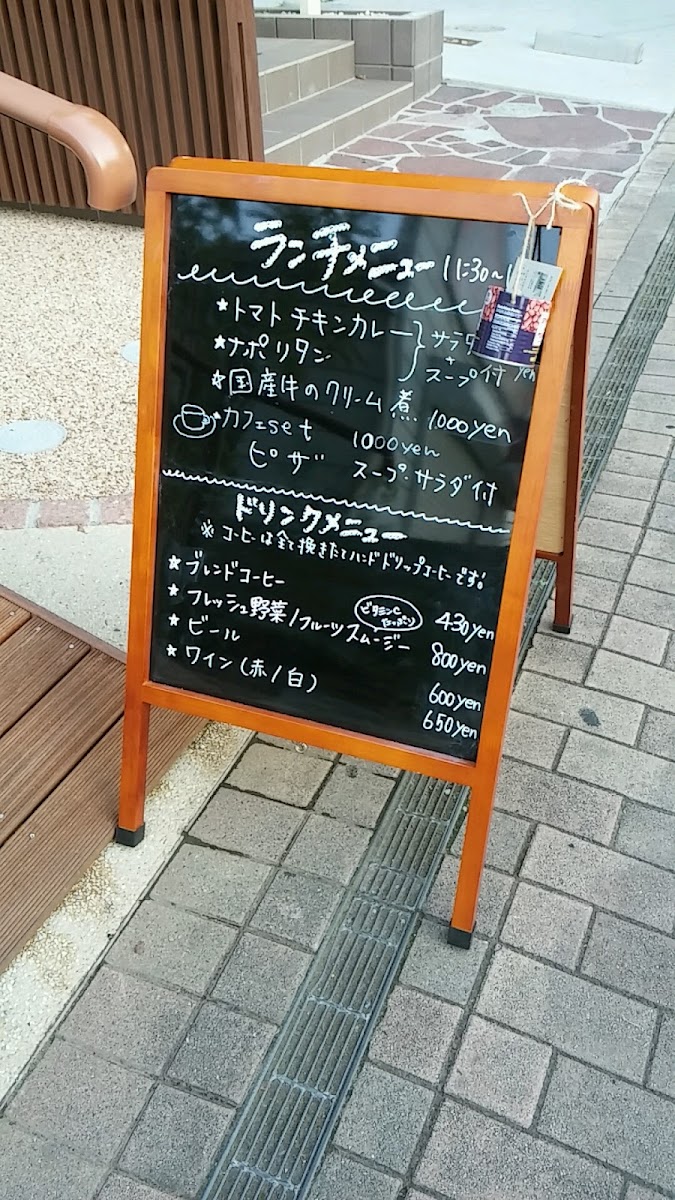 ランチメニュー 11:30~1
★トマトチキンカレー サラダ
★ナポリタン + スープ付 yen
★国産牛のクリーム煮 1000yen
カフェset 1000yen
ピザ スープ・サラダ付
ドリンクメニュー
※コーヒーは全て挽きたてハンドドリップコーヒーです!
★ブレンドコーヒー 430yen
★フレッシュ野菜/フルーツスムージー ビタミンCたっぷり 800yen
★ビール 600yen
★ワイン(赤/白) 650yen